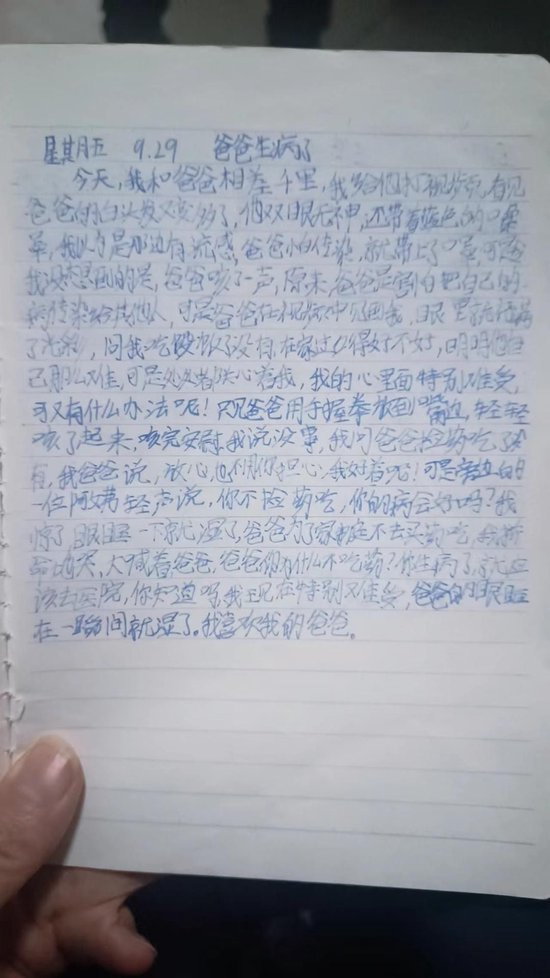 星期五 9.29 爸爸生病了
今天,我和爸爸相差千里,我给他打视频,看见
爸爸的白头发又变多了,他双眼无神,还带着蓝色的口罩
罩,我以为是那边有流感,爸爸怕传染,就带上了口罩,可
我没想到的是,爸爸咳了一声,原来,爸爸是害怕把自己的
病传染给其他人,可是爸爸在视频中见到我,眼里就
了,问我吃饭了没有,在家过得好不好,明明他自
己那么难,可是处处关心着我,我的心里面特别难受,
可又有什么办法呢!只见爸爸用手握拳放到嘴边,轻轻
咳了起来,咳完安慰我说没事,我问爸爸捡药吃了没
有,我爸爸说,放心,也不用你担心,我好着呢!可是旁边的
一位阿姨轻声说,你不捡药吃,你的病会好吗?我
惊了,眼眶一下就湿了,爸爸为了家庭不去买药吃,我
的哭,大喊着爸爸,爸爸你为什么不吃药?你生病了就应
该去医院,你知道吗,我现在特别难受,爸爸的眼眶
在一瞬间就湿了。我喜欢我的爸爸。